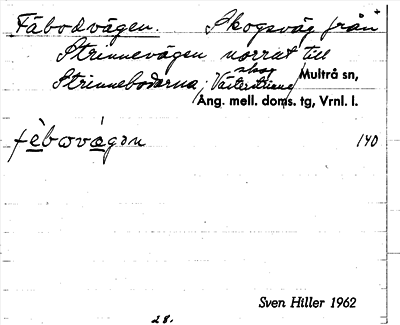 Fäbodvägen. Skogsväg från
Strinnevägen norrut till
Strinnebodarna, Västerstrinne skog
Multrå sn,
Ång. mell. doms. tg, Vrnl. l.
fèbovágən 140
Sven Hiller 1962
28.